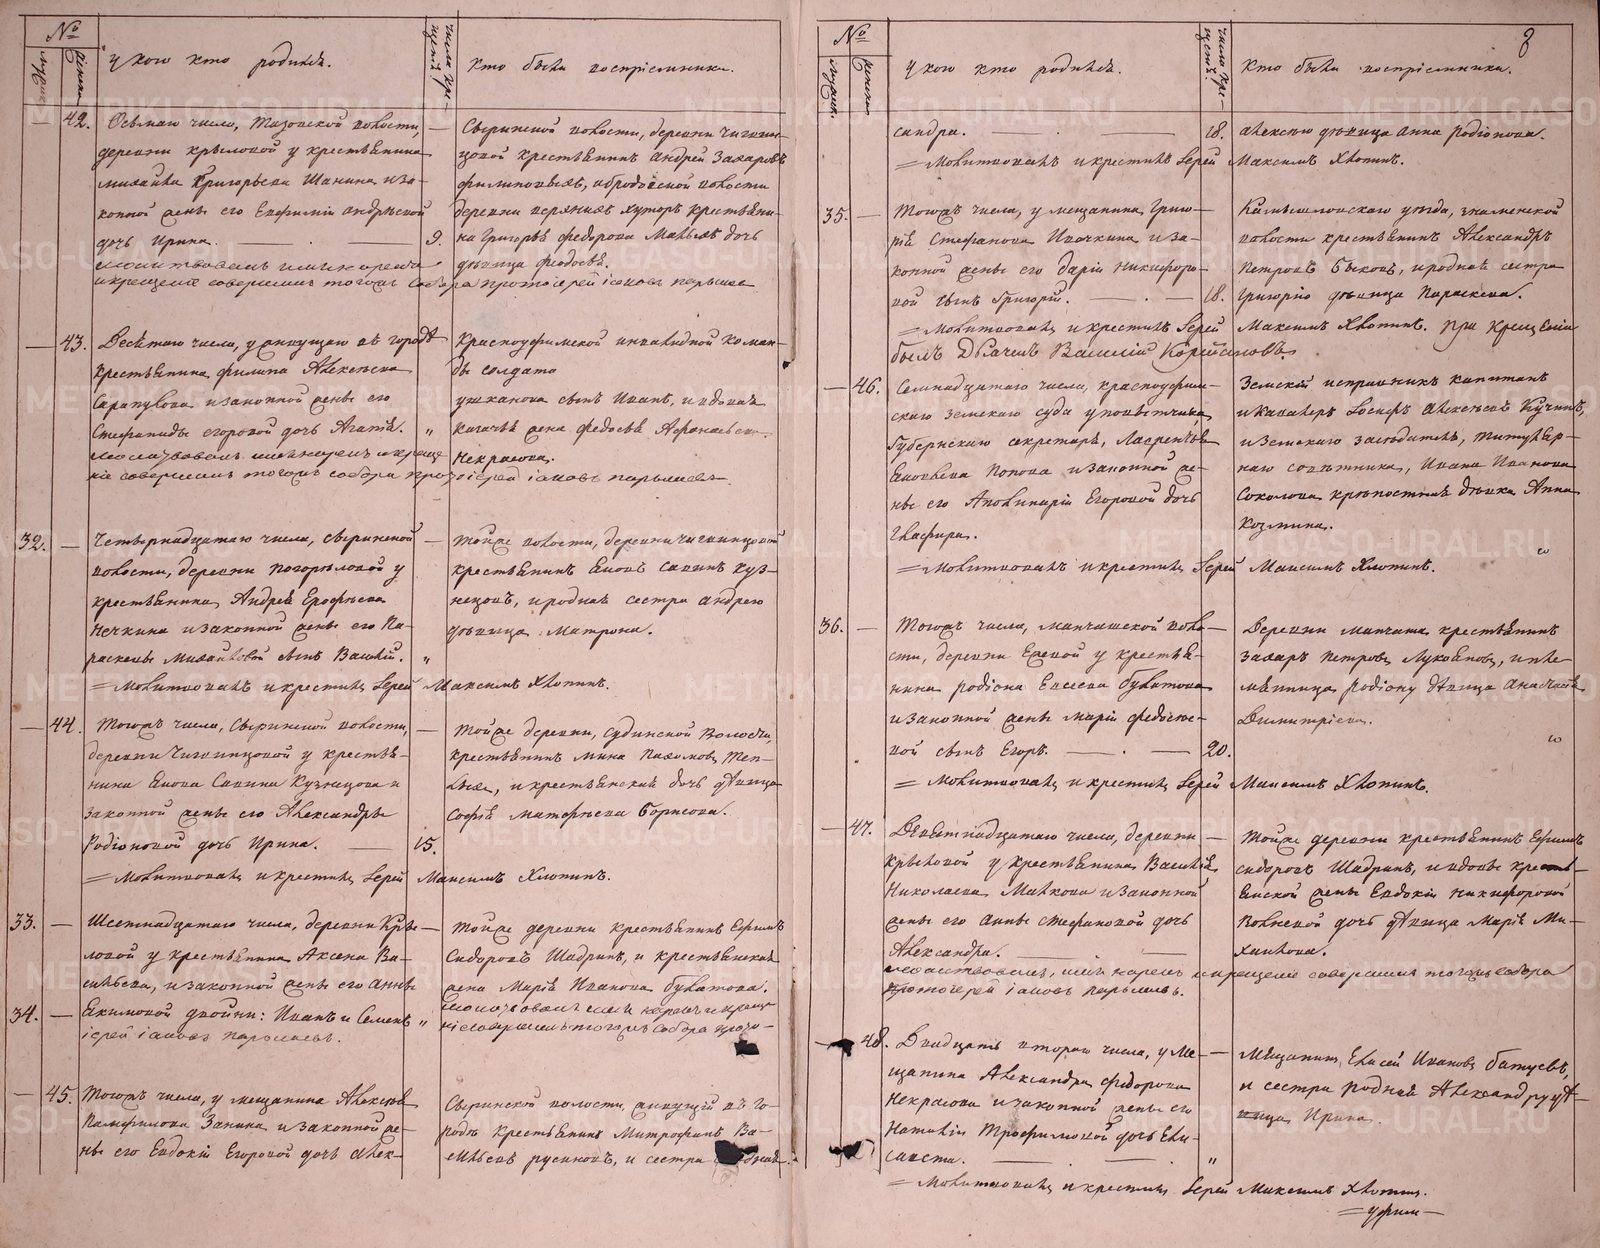 №
мужеска
женска
У кого кто родился.
Число крещенія
Кто были воспріемники.
42.
Осьмаго числа, волости,
деревни Крыловой у крестьянина
Михаила Григорьева Шанина и за-
конной жены его Евфиміи Андреевой
дочь Ирина.
9.
Сыринской волости, деревни Чигвин-
цовой крестьянинъ Андрей Захаровъ
волости
деревни хуторъ крестьяни-
на Григорья Федорова дочь
дѣвица Феодосья.
молитвовалъ имянарекъ
и крещеніе совершилъ тогожъ Собора протоіерей Іаковъ
43.
Десятаго числа, у живущаго въ городѣ
крестьянина Филипа Алексѣева
Сарапулова и законной жены его
Стефаниды Егоровой дочь Агапія.
"
Красноуфимской инвалидной коман-
ды солдата
сынъ Иванъ, и вдовая
казачья жена Федосья
Некрасова.
молитвовалъ имянарекъ и креще-
ніе совершилъ тогожъ собора протоіерей Іаковъ
32.
Четырнадцатаго числа, Сыринской
волости, деревни Погорѣловой у
крестьянина Андрея Ерофѣева
Нечкина и законной жены его Па-
раскевы Михайловой сынъ Василій.
"
Тойже волости, деревни Чигвинцовой
крестьянинъ Савинъ Куз-
нецовъ, и родная сестра Андрею
дѣвица Матрона.
= Молитвовалъ и крестилъ Іерей Максимъ Хлопинъ.
44.
Тогожъ числа, Сыринской волости,
деревни Чигвинцовой у крестья-
нина Савина Кузнецова и
законной жены его Александры
Родіоновой дочь Ирина.
15.
Тойже деревни, Судинской Волости,
крестьянинъ Мина Пахомовъ
и крестьянская дочь дѣвица
Софія Матфѣева Борисова.
= Молитвовалъ и крестилъ Іерей Максимъ Хлопинъ.
33.
Шестнадцатаго числа, деревни Кры-
ловой у крестьянина Аксена Ва-
сильева, и законной жены его Анны
34.
Екимовой двойни: Иванъ и Семенъ
"
Тойже деревни крестьянинъ Ефимъ
Сидоровъ Шадринъ, и крестьянская
жена Марія Иванова Булатова.
молитвовалъ имя нарекъ и креще-
ніе совершилъ тогожъ Собора прото-
іерей Іаковъ
45.
Тогожъ числа, у мещанина Алексѣя
Памфилова Занина и законной же-
ны его Евдокіи Егоровой дочь Алек-
Сыринской волости, живущій въ го-
родѣ крестьянинъ Митрофанъ Ва-
сильевъ Русиновъ, и сестра родная
№
мужеск.
женска
У кого кто родился.
Число крещенія.
Кто были воспріемники.
8
сандра.
18.
Алексѣю дѣвица Анна Родіонова.
= Молитвовалъ и крестилъ Іерей Максимъ Хлопинъ.
35.
Тогожъ числа, у мещанина Григо-
рія Стефанова Ивачкина и за-
конной жены его Даріи Никифоро-
вой сынъ Григорій.
18.
Камышловскаго уѣзда, Знаменской
волости крестьянинъ Александръ
Петровъ Быковъ, и родная сестра
Григорію дѣвица Параскева.
= Молитвовалъ и крестилъ Іерей Максимъ Хлопинъ. При крещеніи
былъ Дьячекъ Василій
46.
Семнадцатаго числа, Красноуфим-
скаго земскаго суда у повытчика,
Губернскаго секретаря, Лаврентья
Попова и законной же-
ны его Аполинаріи Егоровой дочь
Глафира.
Земскій исправникъ капитанъ
и кавалеръ Іосифъ Алексѣевъ Кучинъ,
и земскаго засѣдателя, титуляр-
наго совѣтника, Ивана Иванова
Соколова крѣпостная дѣвка Анна
Козмина.
= Молитвовалъ и крестилъ Іерей Максимъ Хлопинъ.
36.
Тогожъ числа, Манчажской воло-
сти, деревни у крестья-
нина Родіона Евсеева Булатова
и законной жены Маріи Федосѣе-
вой сынъ Егоръ.
20.
Деревни Манчажа крестьянинъ
Захаръ Петровъ Лукояновъ, и пле-
мянница Родіону дѣвица Анастасія
Димитріева.
= Молитвовалъ и крестилъ Іерей Максимъ Хлопинъ.
47.
Девятнадцатаго числа, деревни
Крыловой у крестьянина Василія
Николаева Малкова и законной
жены его Анны Стефановой дочь
Александра.
Тойже деревни крестьянинъ Ефимъ
Сидоровъ Шадринъ, и вдовы кресть-
янской жены Евдокіи Никифоровой
дочь дѣвица Марія Ми-
хайлова.
молитвовалъ, имя нарекъ и крещеніе совершилъ тогожъ собора
протоіерей Іаковъ
48.
Двадцать втораго числа, у ме-
щанина Александра Федорова
Некрасова и законной жены его
Наталіи Трофимовой дочь Ели-
савета.
"
Мѣщанинъ Елисей Ивановъ
и сестра родная Александру дѣ-
вица Ирина.
= Молитвовалъ и крестилъ Іерей Максимъ Хлопинъ.
= Уфим =